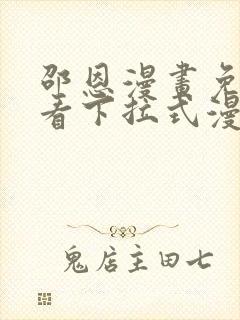 邵恩漫畫免
看下拉式漫
鬼店主田七